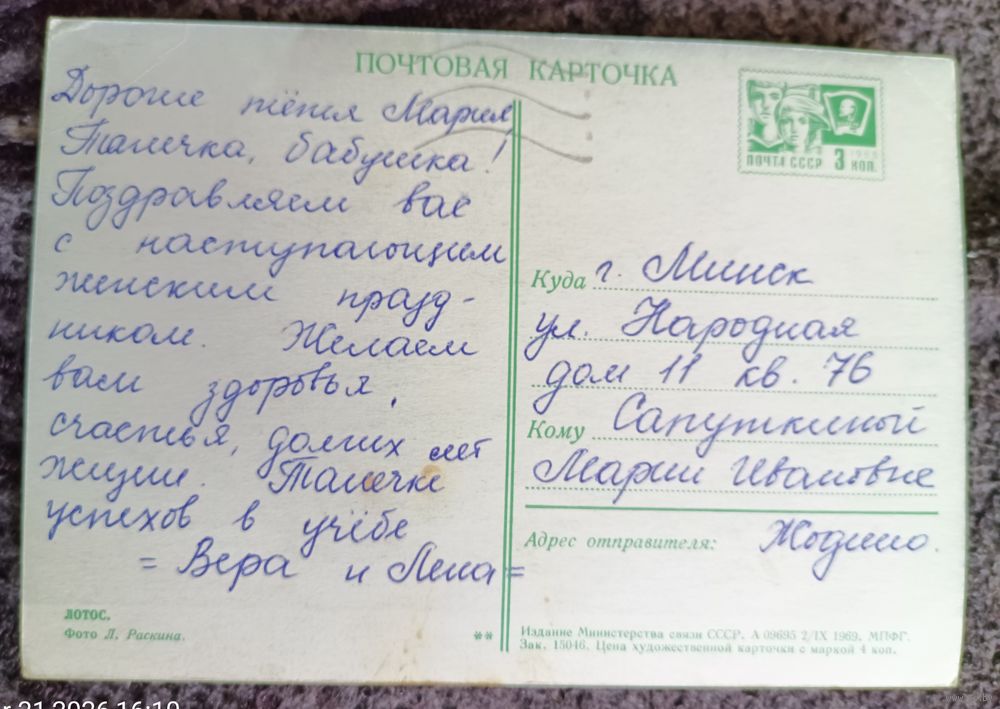 ПОЧТОВАЯ КАРТОЧКА
Дорогие тётя Мария
Танечка, бабушка!
Поздравляем вас
с наступающим
женским празд-
ником. Желаем
вам здоровья,
счастья, долгих лет
жизни. Танечке
успехов в учёбе
= Вера и Лена =
ЛОТОС.
Фото Л. Раскина.
**
ПОЧТА СССР 3 КОП.
Куда г. Минск
ул. Народная
дом 11 кв. 76
Кому Сапуткиной
Марии Ивановне
Адрес отправителя: Жодино.
Издание Министерства связи СССР. А 09695 2/IX 1969. МПФГ.
Зак. 15046. Цена художественной карточки с маркой 4 коп.
21 2026 16:19